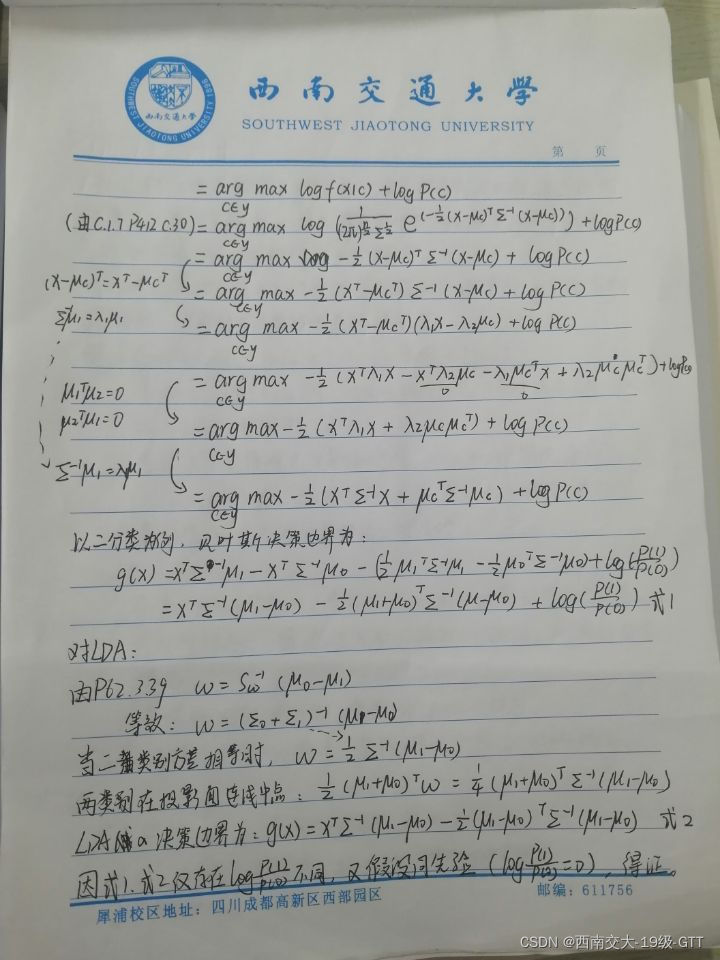 西南交通大学
SOUTHWEST JIAOTONG UNIVERSITY
第 页
= arg max_{c∈y} log f(x|c) + log P(c)
(由C.1.7 P412 C.30) = arg max_{c∈y} log (1/((2π)^{n/2} Σ^{1/2}) e^(-½(x-μc)ᵀ Σ⁻¹(x-μc))) + log P(c)
= arg max_{c∈y} -½ (x-μc)ᵀ Σ⁻¹ (x-μc) + log P(c)
(x-μc)ᵀ=xᵀ-μcᵀ = arg max_{c∈y} -½ (xᵀ-μcᵀ) Σ⁻¹ (x-μc) + log P(c)
Σμ₁=λ₁μ₁ = arg max_{c∈y} -½ (xᵀ-μcᵀ)(λ₁x-λ₂μc) + log P(c)
= arg max_{c∈y} -½ (xᵀλ₁x - xᵀλ₂μc - λ₁μcᵀx + λ₂μcμcᵀ) + log P(c)
0 0
μ₁ᵀμ₂=0
μ₂ᵀμ₁=0 = arg max_{c∈y} -½ (xᵀλ₁x + λ₂μcμcᵀ) + log P(c)
Σ⁻¹μ₁=λμ₁
= arg max_{c∈y} -½ (xᵀΣ⁻¹x + μcᵀΣ⁻¹μc) + log P(c)
以二分类为例，贝叶斯决策边界为：
g(x) = xᵀΣ⁻¹μ₁ - xᵀΣ⁻¹μ₀ - (½μ₁ᵀΣ⁻¹μ₁ - ½μ₀ᵀΣ⁻¹μ₀) + log(P(1)/P(0))
= xᵀΣ⁻¹(μ₁-μ₀) - ½(μ₁+μ₀)ᵀΣ⁻¹(μ₁-μ₀) + log(P(1)/P(0)) 式1
对LDA：
由P62.3.39 w = Sw⁻¹ (μ₀-μ₁)
等效：w = (Σ₀+Σ₁)⁻¹ (μ₁-μ₀)
当二类类别方差相等时，w = ½Σ⁻¹(μ₁-μ₀)
两类别在投影面连线中点：½(μ₁+μ₀)ᵀw = ¼(μ₁+μ₀)ᵀΣ⁻¹(μ₁-μ₀)
LDA的决策边界为：g(x) = xᵀΣ⁻¹(μ₁-μ₀) - ½(μ₁-μ₀)ᵀΣ⁻¹(μ₁-μ₀) 式2
因式1.式2仅存在log P(1)/P(0)不同，又假设同先验 (log P(1)/P(0)=0)，得证。
犀浦校区地址：四川成都高新区西部园区 邮编：611756
CSDN @西南交大-19级-GTT